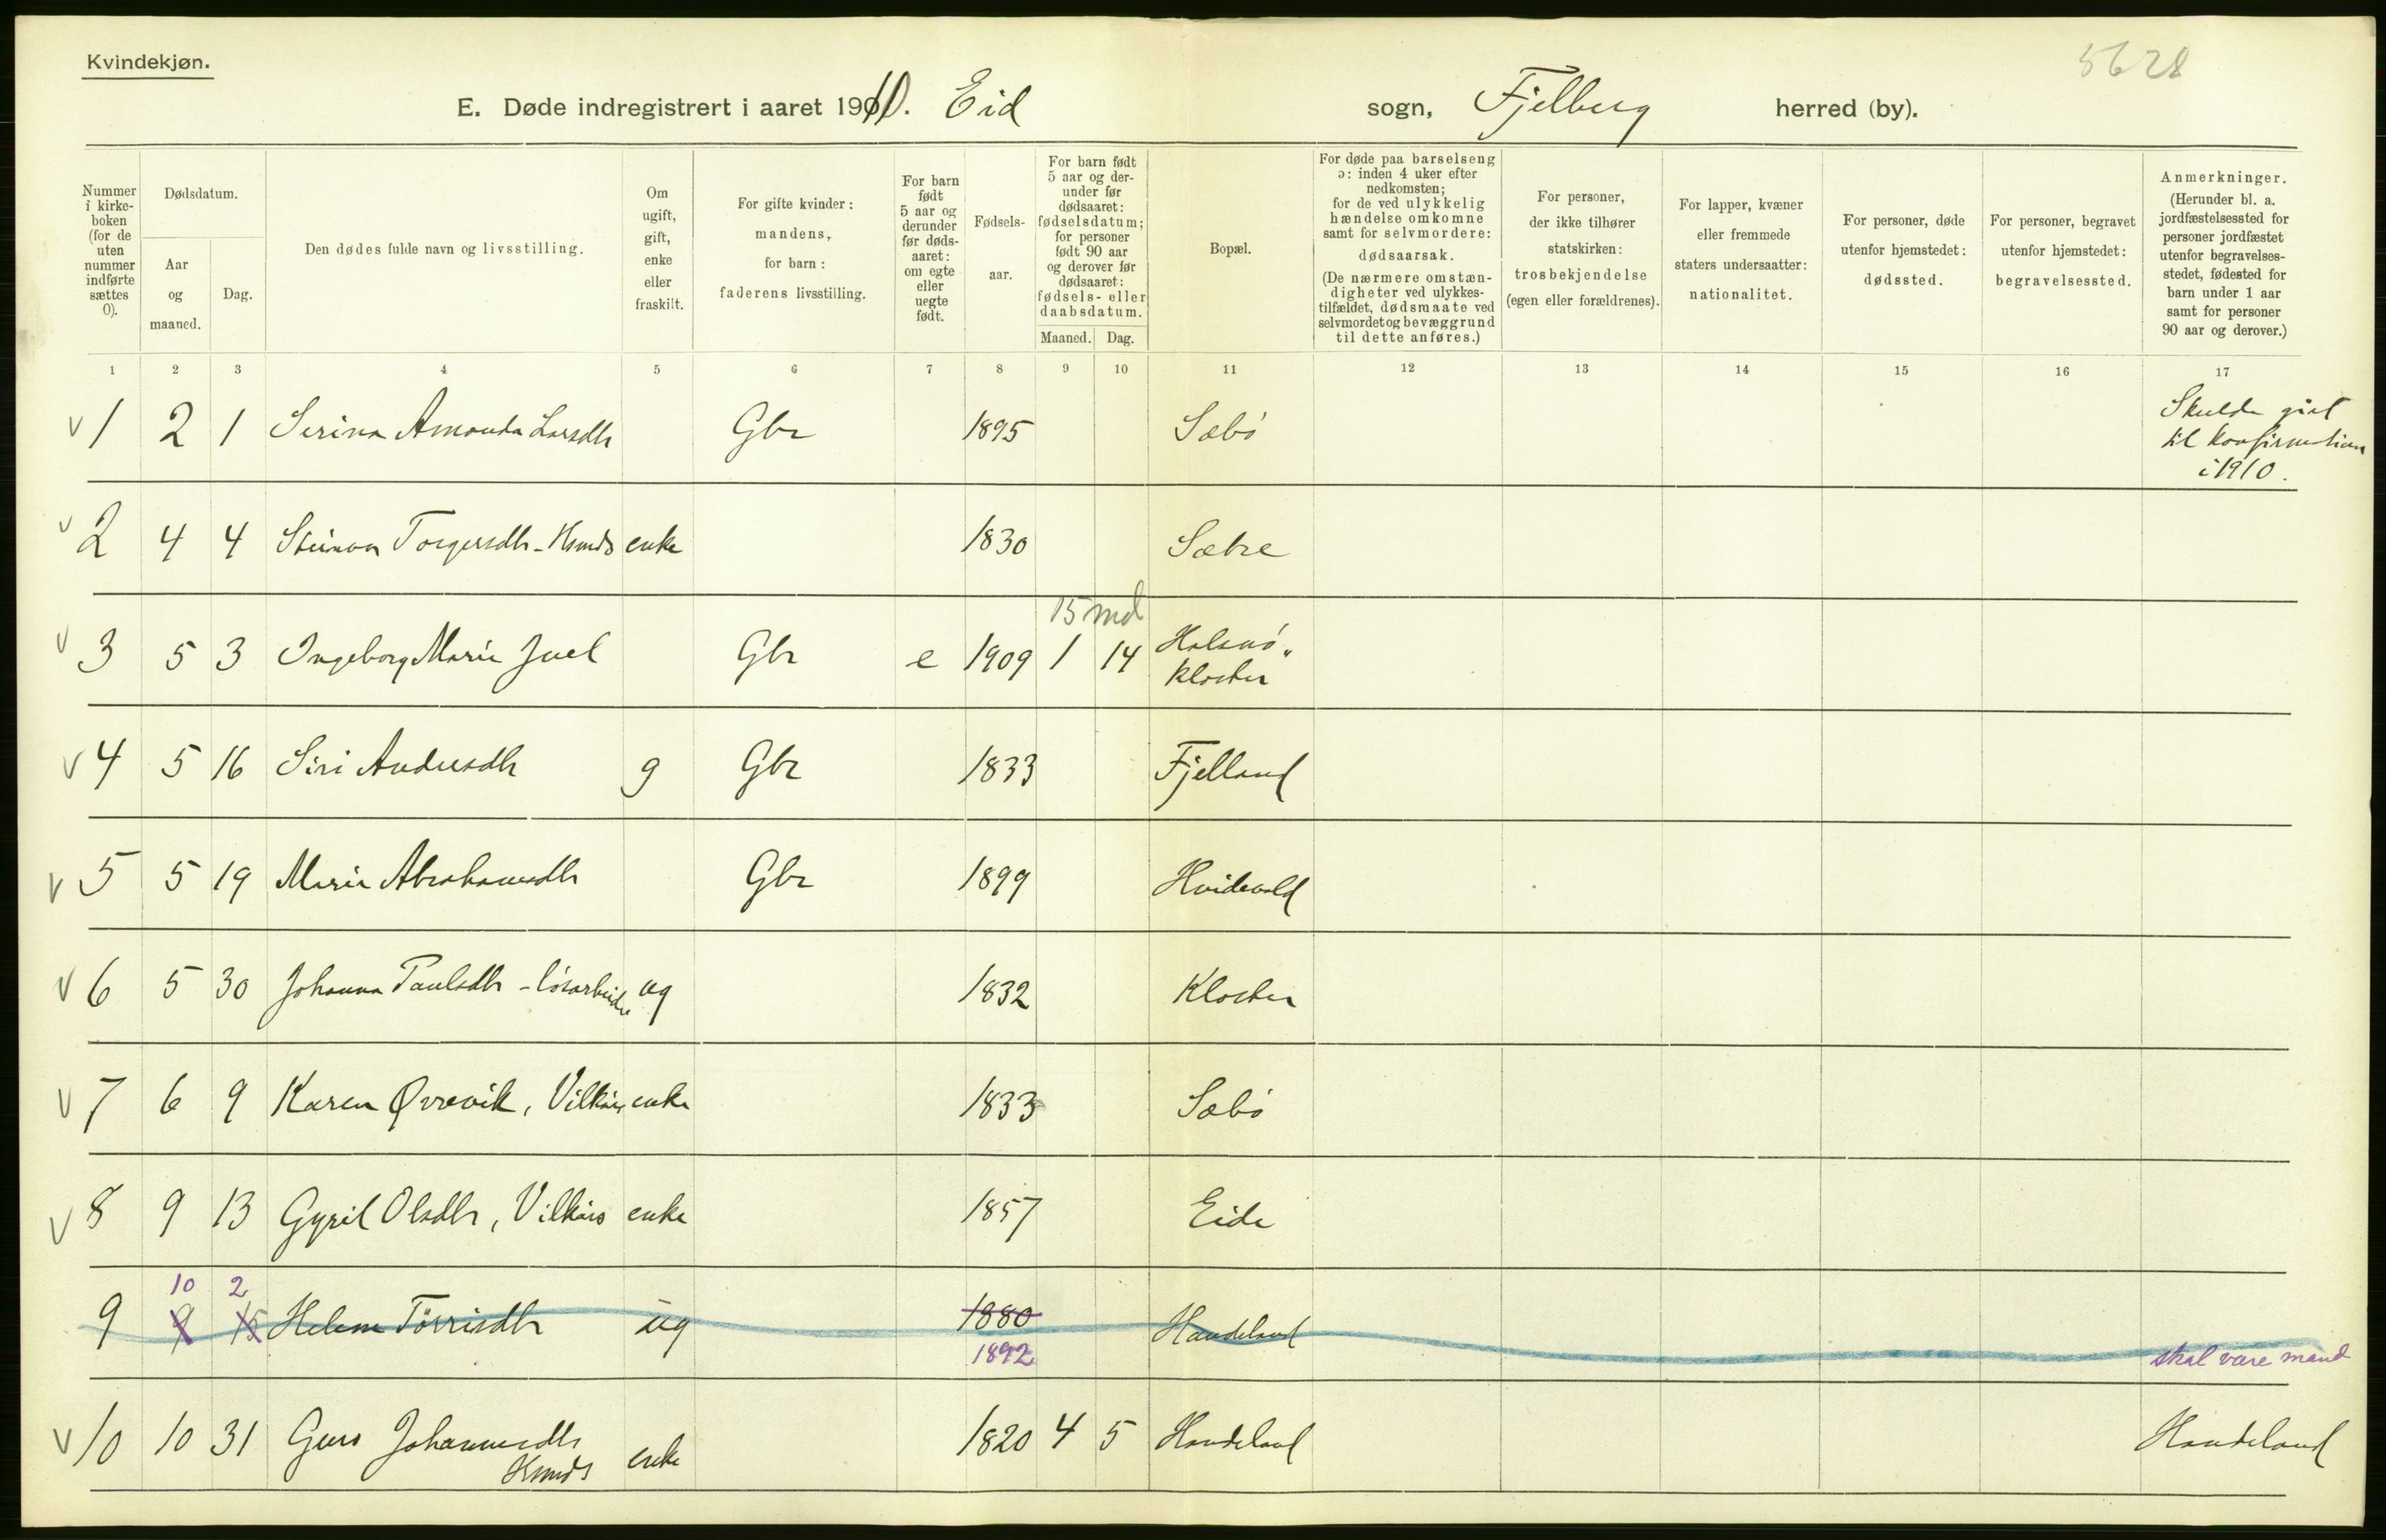 Kvindekjøn.
5628
E. Døde indregistrert i aaret 1910. Eid sogn, Fjelberg herred (by).
Nummer i kirke- boken (for de uten nummer indførte sættes 0).
Dødsdatum.
Aar og maaned.
Dag.
Den dødes fulde navn og livsstilling.
Om ugift, gift, enke eller fraskilt.
For gifte kvinder: mandens, for barn: faderens livsstilling.
For barn født 5 aar og derunder før døds- aaret: om egte eller uegte født.
Fødsels- aar.
For barn født 5 aar og der- under før dødsaaret: fødselsdatum; for personer født 90 aar og derover før dødsaaret: fødsels- eller daabsdatum.
Maaned. Dag.
Bopæl.
For døde paa barselseng ɔ: inden 4 uker efter nedkomsten; for de ved ulykkelig hændelse omkomne samt for selvmordere: dødsaarsak. (De nærmere omstæn- digheter ved ulykkes- tilfældet, dødsmaate ved selvmordet og bevæggrund til dette anføres.)
For personer, der ikke tilhører statskirken: trosbekjendelse (egen eller forældrenes).
For lapper, kvæner eller fremmede staters undersaatter: nationalitet.
For personer, døde utenfor hjemstedet: dødssted.
For personer, begravet utenfor hjemstedet: begravelsessted.
Anmerkninger. (Herunder bl. a. jordfæstelsessted for personer jordfæstet utenfor begravelses- stedet, fødested for barn under 1 aar samt for personer 90 aar og derover.)
1 2 3 4 5 6 7 8 9 10 11 12 13 14 15 16 17
v 1 2 1 Serina Amanda Larsdtr Gbr 1895 Sæbö Skulde gaat
til konfirmation
i 1910.
v 2 4 4 Steinvor Torgersdtr - Hsmds enke 1830 Sætre
15 md
v 3 5 3 Ingeborg Marie Juel Gbr e 1909 1 14 Halsnö-
kloster
v 4 5 16 Siri Andersdtr g Gbr 1833 Fjelland
v 5 5 19 Marie Abrahamsdtr Gbr 1899 Hvidevold
v 6 5 30 Johanna Paulsdtr - lösarbeider ug 1832 Kloster
v 7 6 9 Karen Ørrevik, Vilkårs enke 1833 Sæbö
v 8 9 13 Gyril Olsdtr, Vilkårs enke 1857 Eide
10 2
9 9 15 Helene Törrisdtr ug 1880 Handeland
1892 skal være mand
v 10 10 31 Guro Johannesdtr enke 1820 4 5 Handeland Handeland
Hsmds